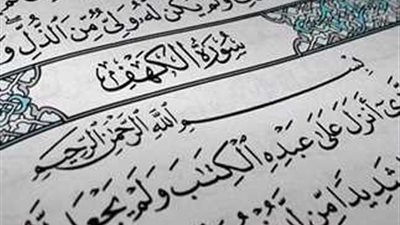 ولم يكن له ولي من الذل و
سُورَةُ الكَهْفِ
بِسْمِ اللَّهِ الرَّحْمَٰنِ الرَّحِيمِ
أَنزَلَ عَلَىٰ عَبْدِهِ الْكِتَابَ وَلَمْ يَجْعَل
شَدِيدًا مِّن